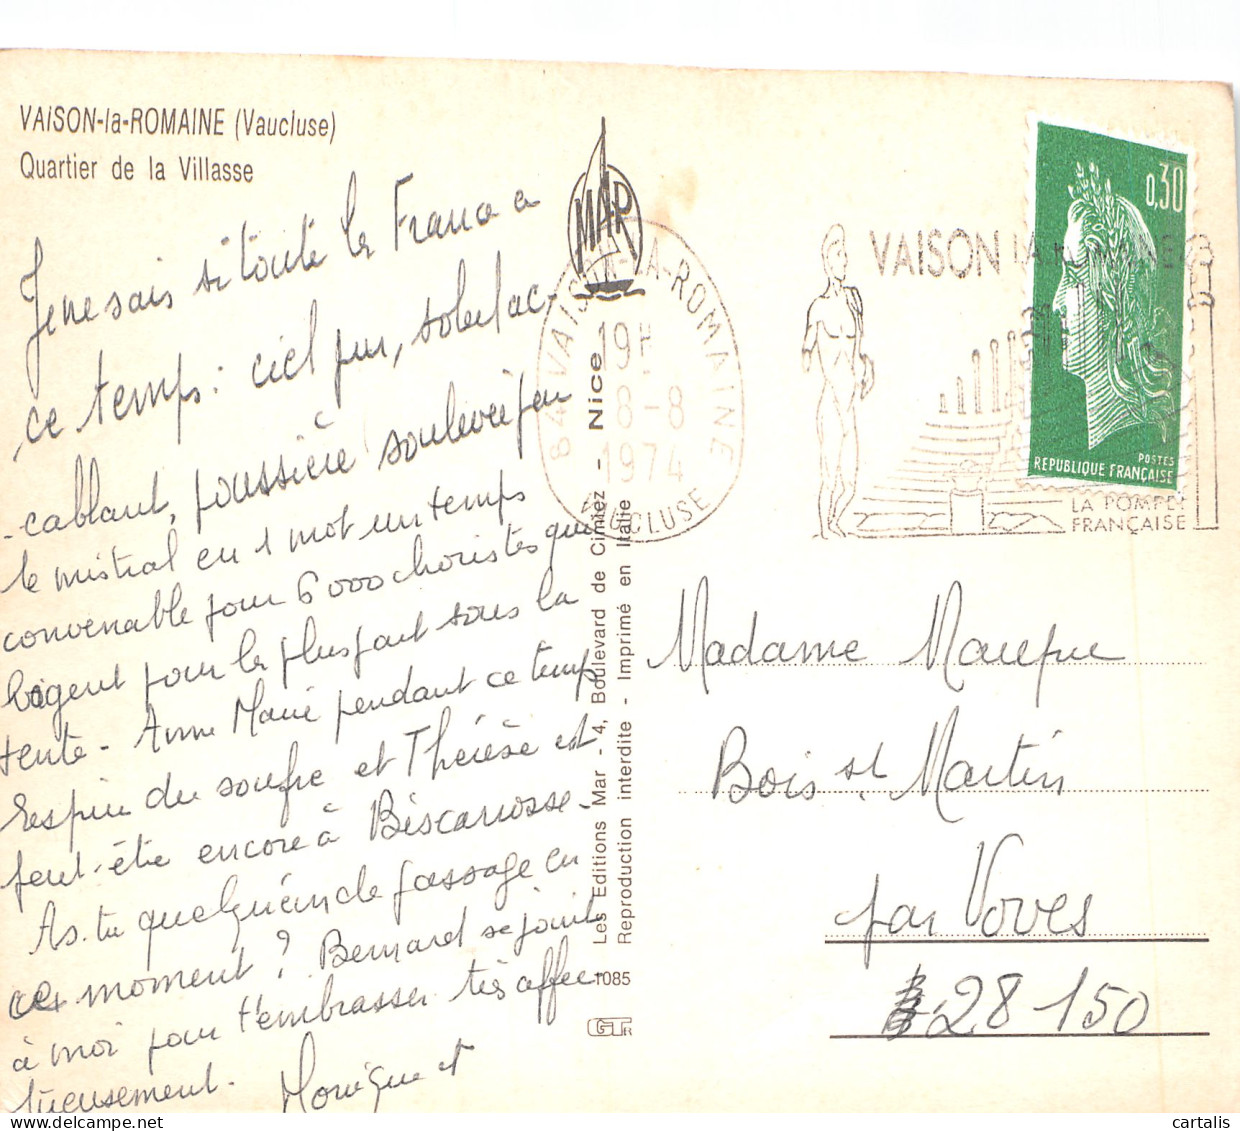 VAISON-la-ROMAINE (Vaucluse)
Quartier de la Villasse
Je ne sais si toute la France a
ce temps : ciel pur, soleil ac-
-cablant, poussière soulevée par
le mistral en 1 mot un temps
convenable pour 6000 choristes qui
logent pour la plupart sous la
tente - Anne Marie pendant ce temps
respire du soufre et Thérèse est
peut-être encore à Biscarrosse -
As-tu quelqu'un de passage en
ce moment ? Bernard se joint
à moi pour t'embrasser très affec-
tueusement. Monique et
MAR
Les Editions Mar - 4, Boulevard de Cimiez - Nice
Reproduction interdite - Imprimé en Italie
1085
GTR
84 VAISON-LA-ROMAINE
19H
8-8
1974
VAUCLUSE
VAISON LA ROMAINE
LA POMPEI
FRANÇAISE
0,30
POSTES
REPUBLIQUE FRANÇAISE
Madame
Bois St. Martin
par Voves
28-150
cartalis